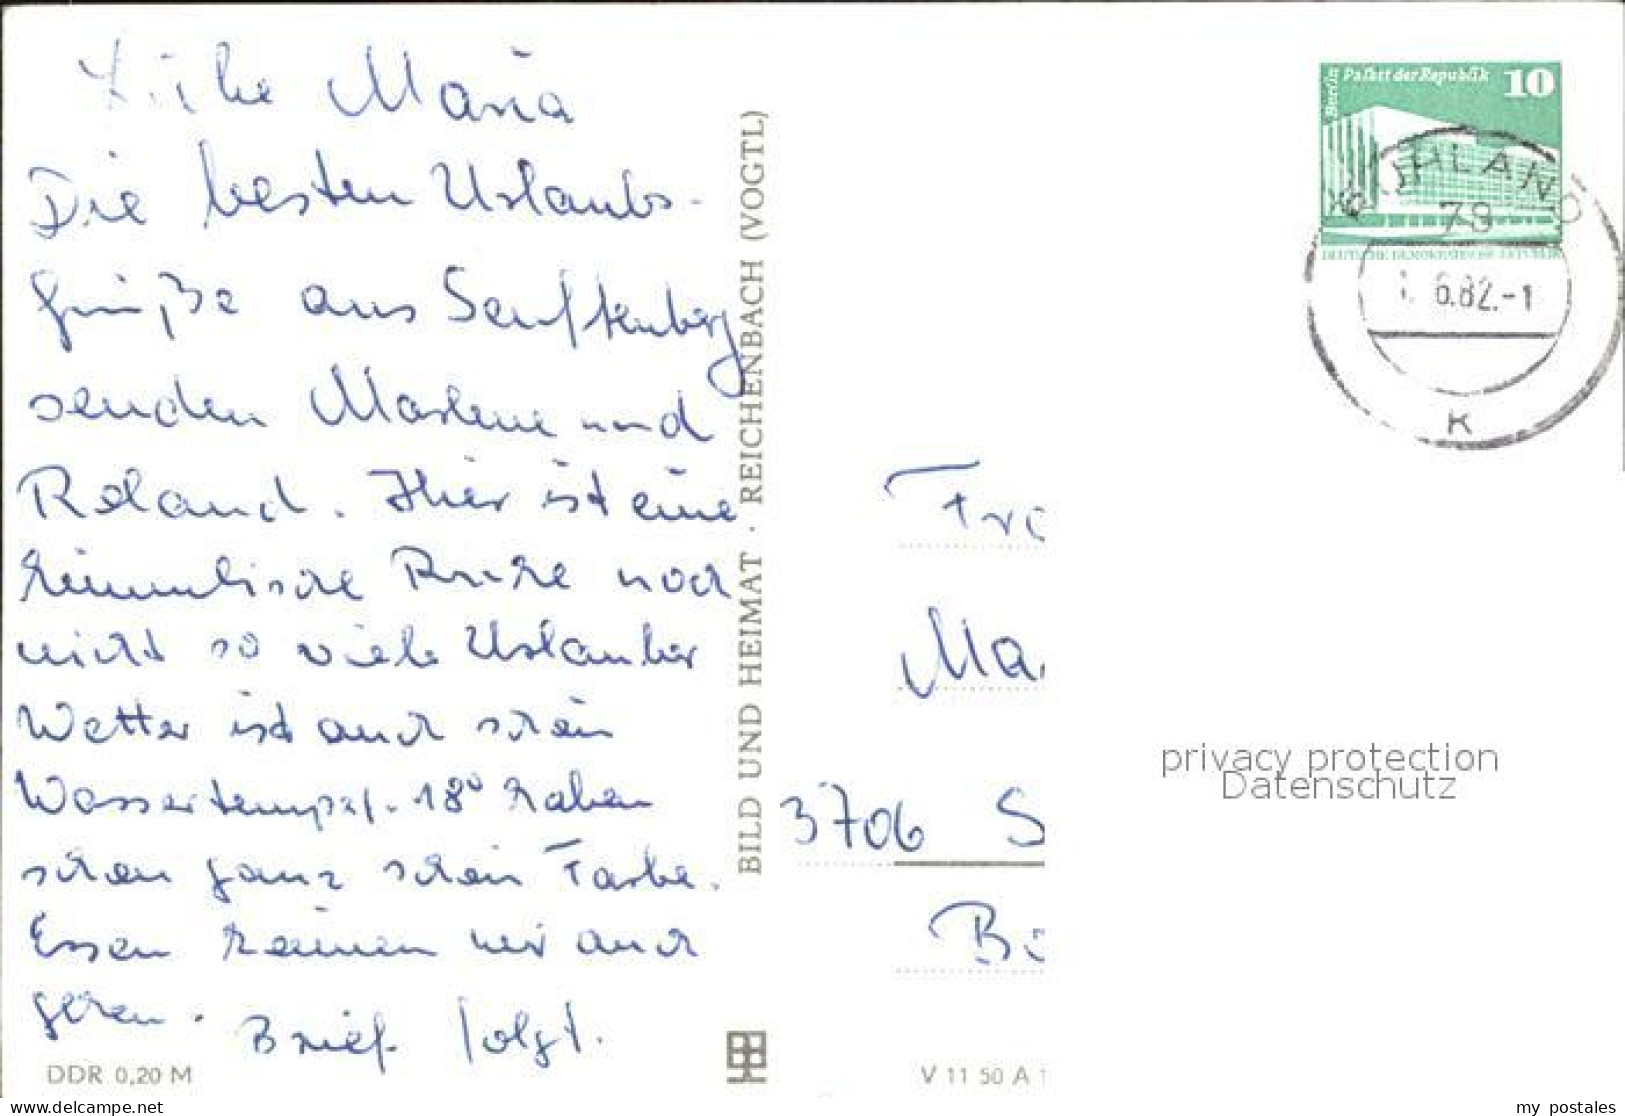 Liebe Maria
Die besten Urlaubs-
grüße aus Senftenberg
senden Marlene und
Roland. Hier ist eine
himmlische Ruhe noch
nicht so viele Urlauber
Wetter ist auch schön
Wassertemp. 18° haben
schon ganz schön Farbe.
Essen können wir auch
gehen.
Brief folgt.
DDR 0,20 M
BILD UND HEIMAT · REICHENBACH (VOGTL)
Berlin Palast der Republik 10
DEUTSCHE DEMOKRATISCHE REPUBLIK
RUHLAND
1. 6.82.-1
K
3706 S
V 11 50 A 1
privacy protection
Datenschutz
delcampe.net
my_postales